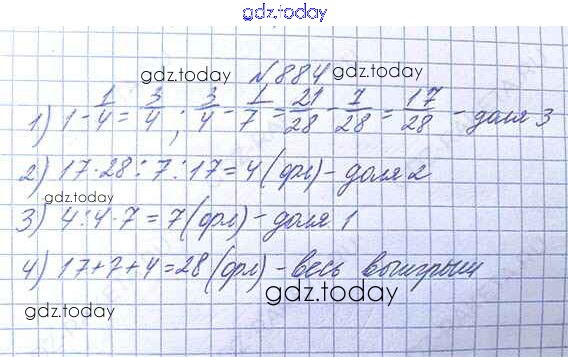 gdz.today
gdz.today №884 gdz.today
1) 1 - 1/4 = 3/4 ; 3/4 - 1/7 = 21/28 - 7/28 = 17/28 - доля 3
2) 17 · 28 : 7 : 17 = 4 (фл) - доля 2
gdz.today
3) 4 : 4 · 7 = 7 (фл) - доля 1
4) 17 + 7 + 4 = 28 (фл) - весь выигрыш
gdz.today
gdz.today